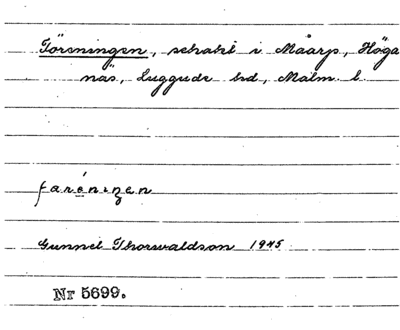 Föreningen, schakt i Måarp, Höga
näs, Luggude hd, Malm. l.
faréninen
Gunnel Thorwaldson 1945
Nr 5699.